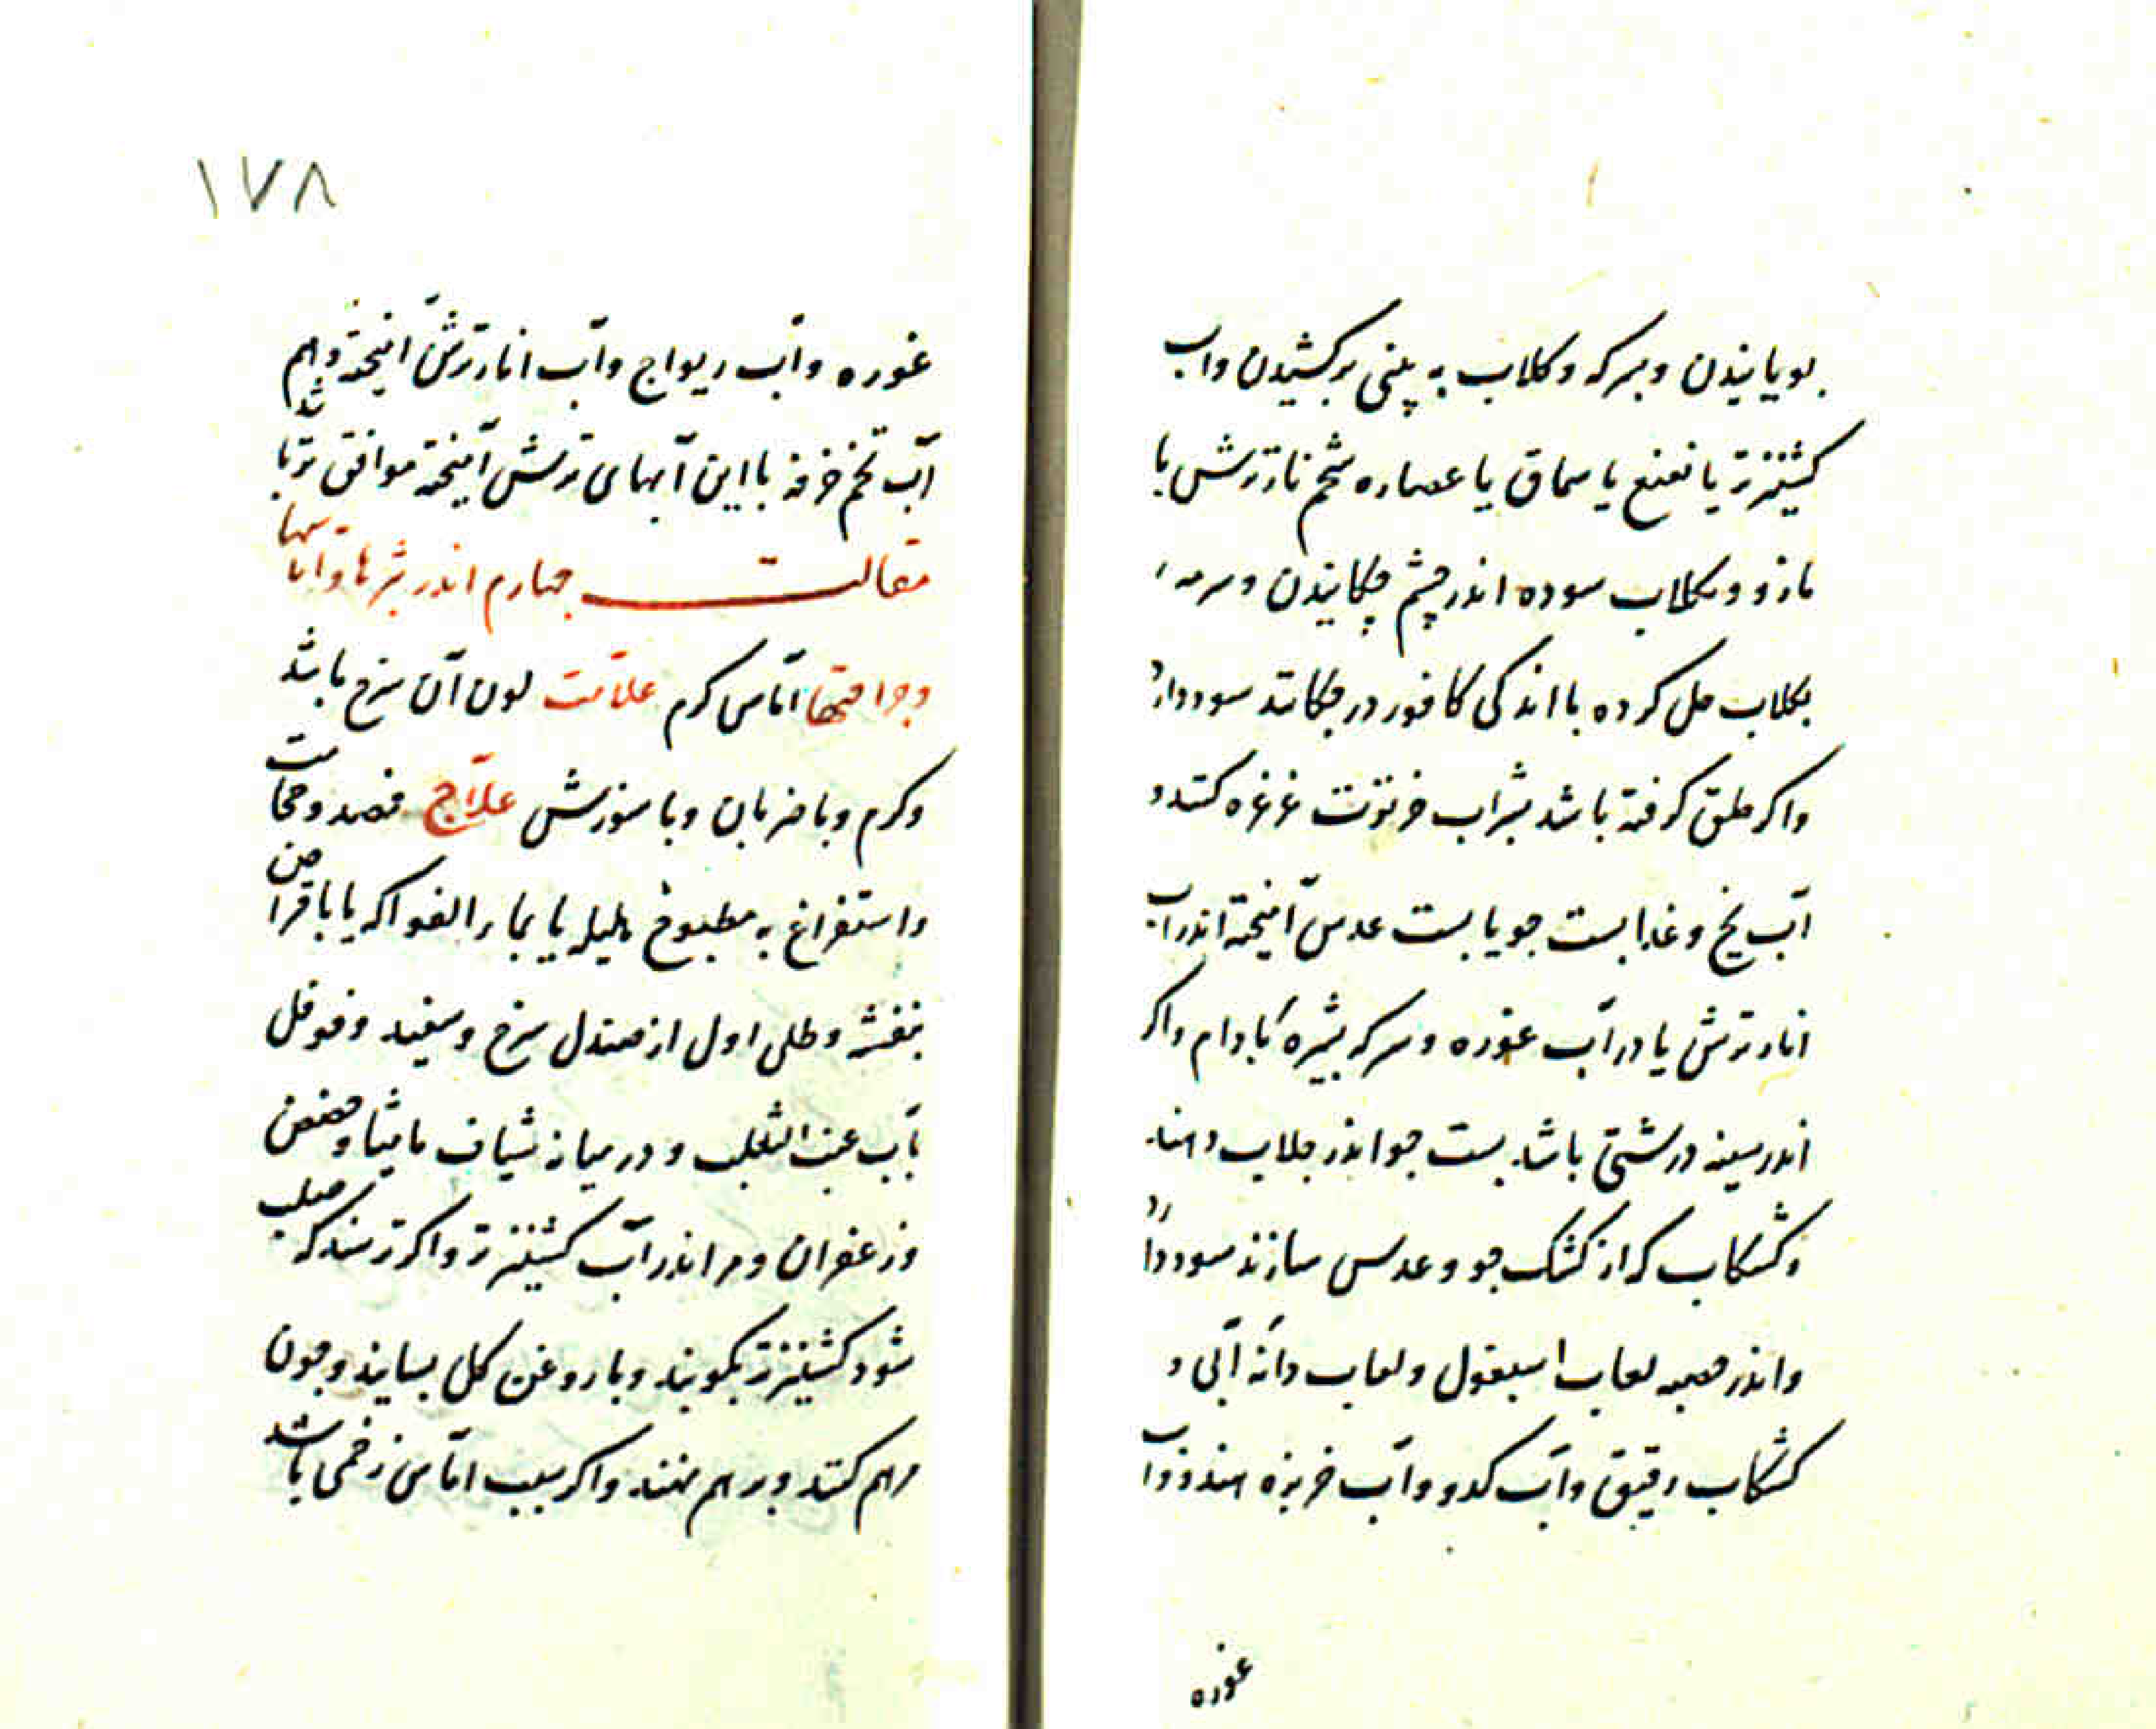 بویانیدن و سرکه و کلاب به بینی برکشیدن و اب
کشنیز تر یا نعنع یا سماق یا عصاره شحم نار ترش یا
مازو و بکلاب سوده اندر چشم چکانیدن و سرمه
بکلاب حل کرده با اندکی کافور در چکانند سود دارد
واکر حلق کرفته باشد بشراب خرتوت غرغره کنند و
آب یخ و غذا بست جو یا بست عدس آمیخته اندر آب
انار ترش یا در آب غوره و سرکه بشیره بادام واکر
اندر سینه درشتی باشد بست جو اندر جلاب دهند
و کشکاب که از کشک جو و عدس سازند سود دارد
و اندر حصبه لعاب اسبغول و لعاب دانه آبی و
کشکاب رقیق و آب کدو و آب خربزه هندو و آب
غوره
۱۷۸
غوره و آب ریواج و آب انار ترش آمیخته دهم
آب تخم خرفه با این آبهای ترش آمیخته موافق تر باشد
مقالت چهارم اندر بثرها و آماسها
و جراحتها آماس کرم علامت لون آن سرخ باشد
و کرم و با ضربان و با سوزش علاج فصد و حجامت
و استفراغ به مطبوخ هلیله یا بماء الفواکه یا باقراص
بنفشه و طلی اول از صندل سرخ و سفید و فوفل
بآب عنب الثعلب و در میانه شیاف مامیثا و حضض
و زعفران و مر اندر آب کشنیز تر واکر ترسند که صلب
شود کشنیز تر بکوبند و با روغن کل بسایند و چون
مرهم کنند و بر هم نهند واکر سبب آماس زخمی باشد